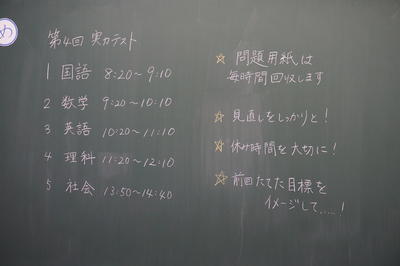 め
第4回 実力テスト
1 国語 8:20~9:10
2 数学 9:20~10:10
3 英語 10:20~11:10
4 理科 11:20~12:10
5 社会 13:50~14:40
☆ 問題用紙は
毎時間回収します
☆ 見直しをしっかりと!
☆ 休み時間を大切に!
☆ 前回たてた目標を
イメージして.....!